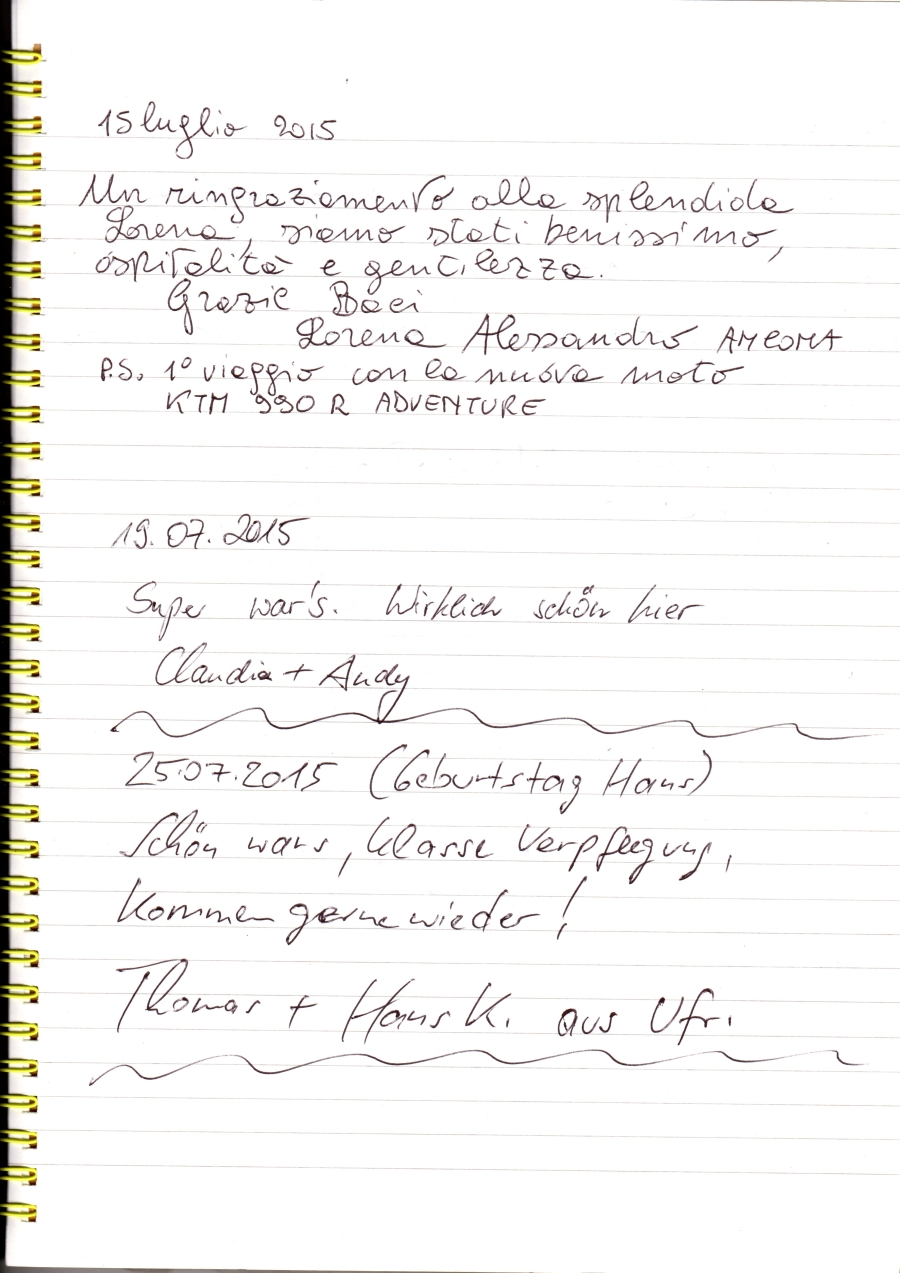 15 luglio 2015
Un ringraziamento alla splendida
Lorena, siamo stati benissimo,
ospitalità e gentilezza.
Grazie Baci
Lorena Alessandro
P.S. 1° viaggio con la nuova moto
KTM 990 R ADVENTURE
19.07.2015
Super war's. Wirklich schön hier
Claudia + Andy
25.07.2015 (Geburtstag Hans)
Schön wars, klasse Verpflegung,
kommen gerne wieder!
Thomas + Hans K. aus Ufr.